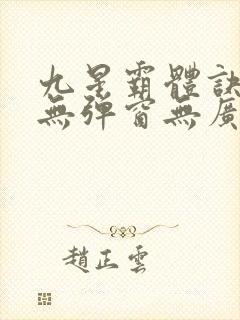 九星霸體訣
無彈窗無廣
趙正雲